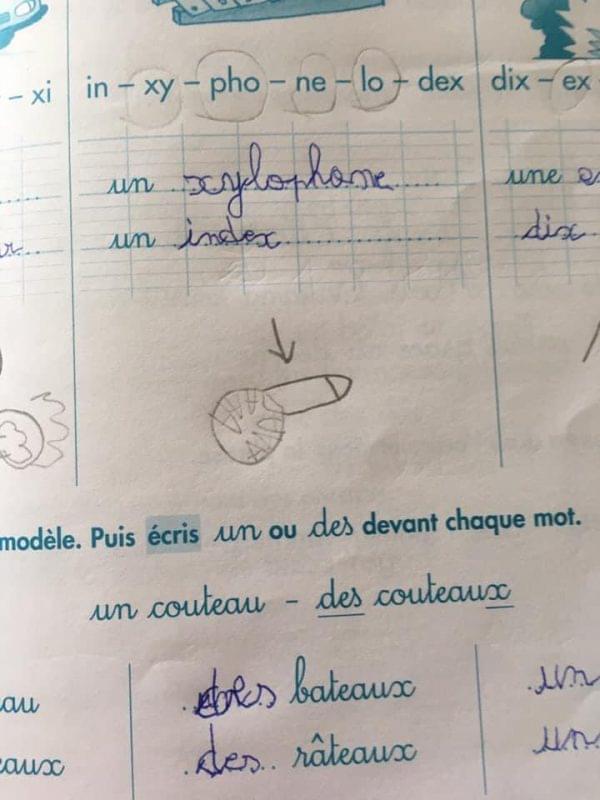 – xi
in – xy – pho – ne – lo – dex
dix – ex
un xylophone
un index
une
dix
modèle. Puis écris un ou des devant chaque mot.
un couteau – des couteaux
eau
des bateaux
un
eaux
des râteaux
un